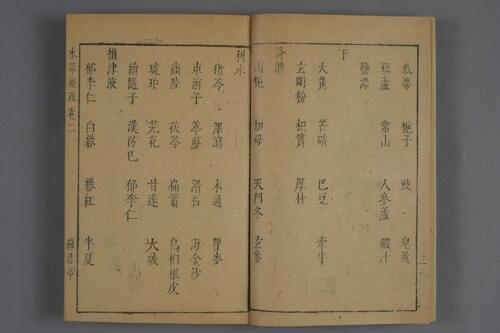 瓜蒂 梔子 豉 皂莢
藜蘆 常山 人參蘆 虀汁
鹽湯
下
大黃 芒硝 巴豆 牽牛
玄明粉 枳實 厚朴
降泄
山梔 知母 天門冬 玄參
利水
猪苓 澤瀉 木通 瞿麥
車前子 葶藶 滑石 海金沙
商陸 茯苓 扁蓄 烏桕根皮
琥珀 芫花 甘遂 大戟
續隨子 漢防巳 郁李仁
損津液
郁李仁 白礬 礬紅 半夏
本草經疏卷二
綠君亭
三